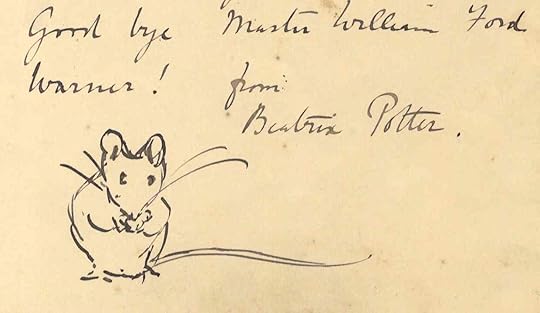 Good bye Master William Ford
Warner! from
Beatrix Potter.